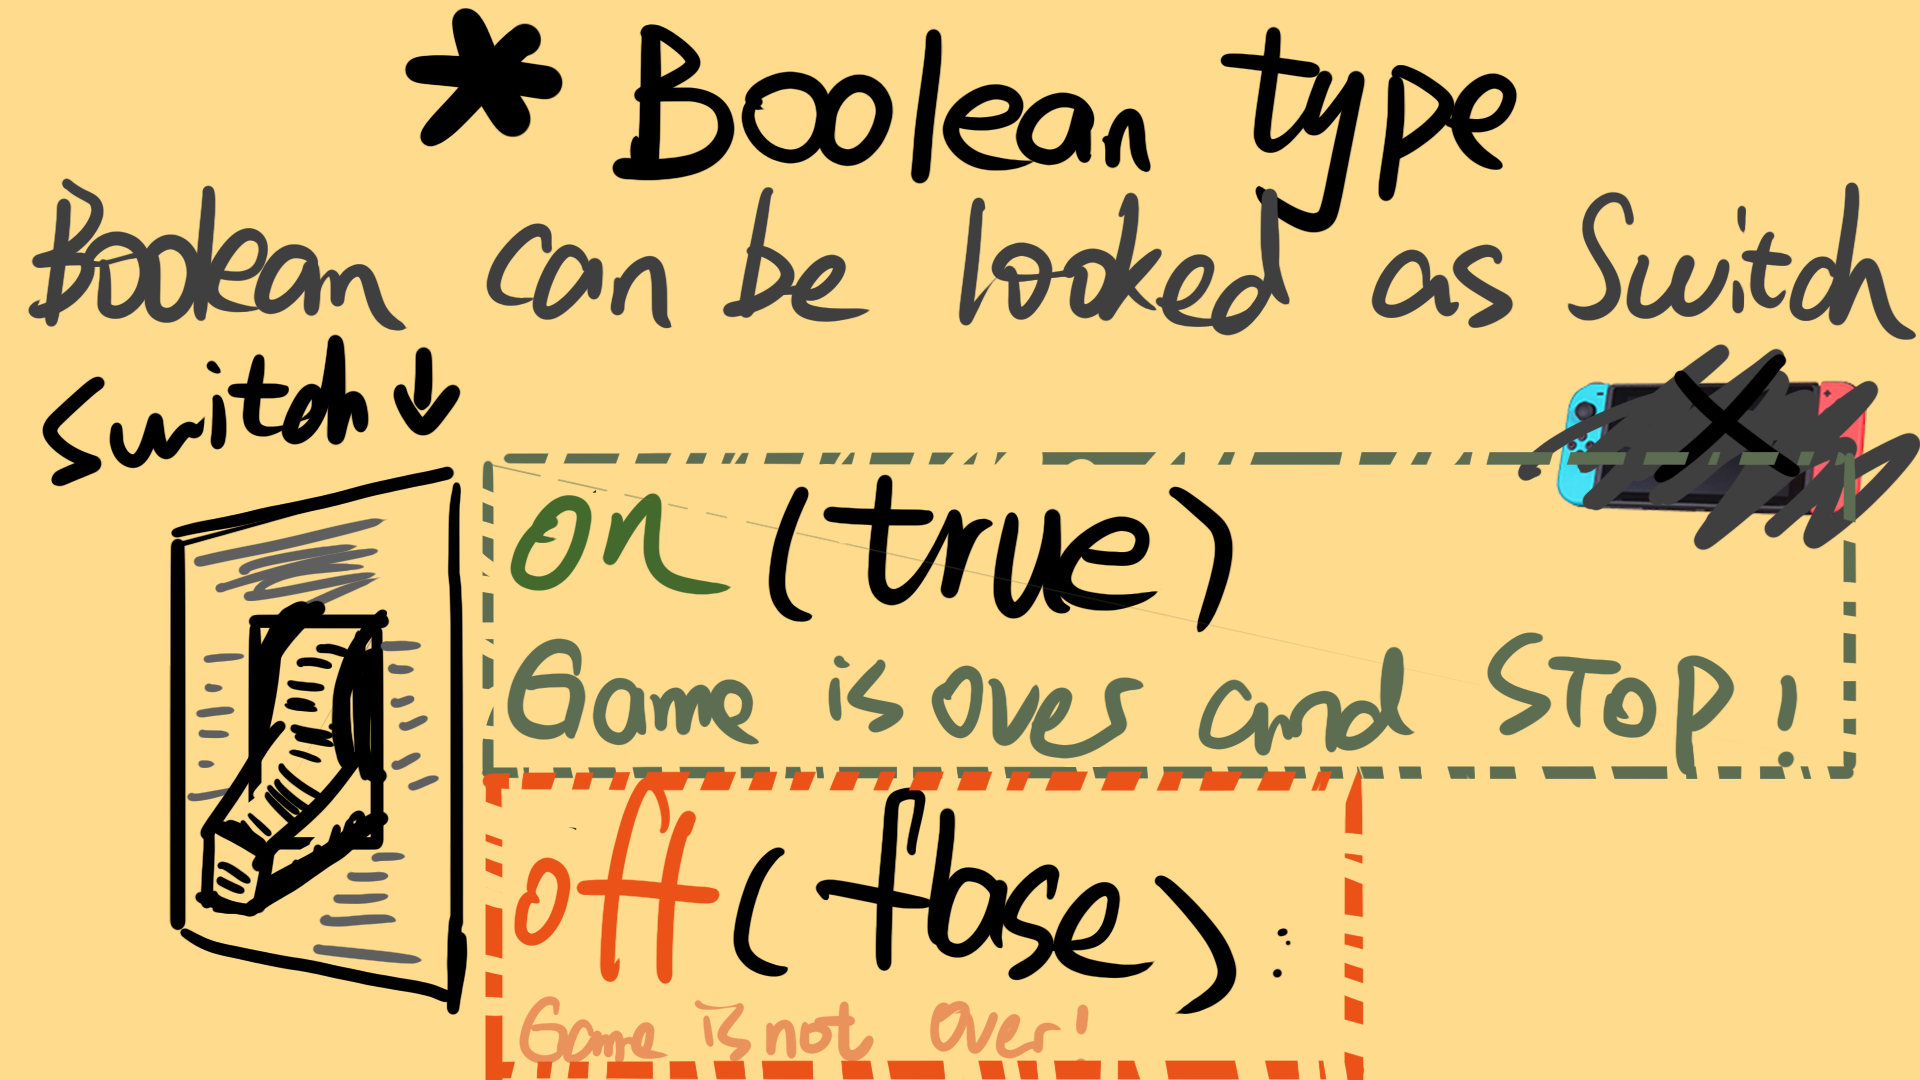 * Boolean type
Boolean can be looked as Switch
Switch ↓
on (true)
Game is over and STOP!
off (flase) :
Game is not over!